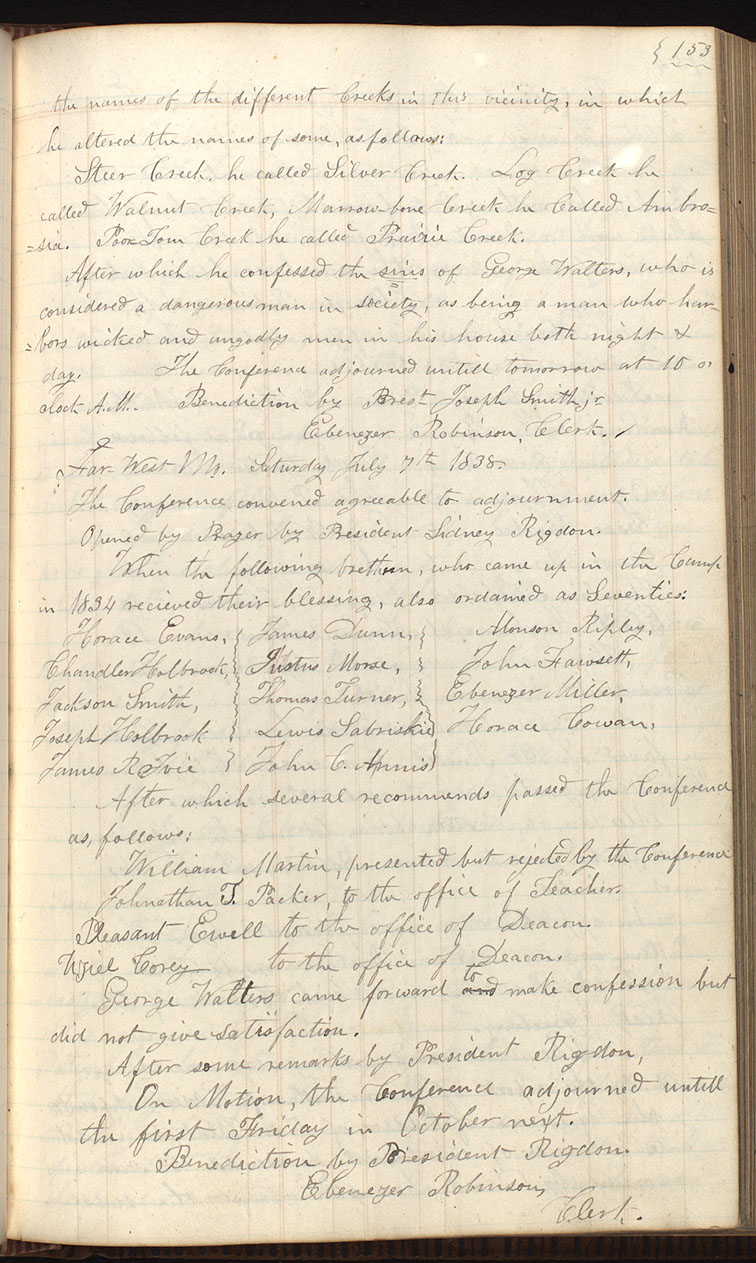 { 153
the names of the different Creeks in this vicinity, in which
he altered the names of some, as follows:
Steer Creek, he called Silver Creek. Log Creek he
called Walnut Creek, Marrow-bone Creek he Called Ambro=
=sia. Poor Tom Creek he called Prairie Creek.
After which he confessed the sins of George Walters, who is
considered a dangerous man in society, as being a man who har=
=bors wicked and ungodly men in his house both night &
day. The Conference adjourned untill tomorrow at 10 o,
clock A.M. Benediction by Prest. Joseph Smith jr
Ebenezer Robinson, Clerk.
Far West Mo. Saturday July 7th 1838.
The Conference convened agreeable to adjournment.
Opened by Prayer by President Sidney Rigdon.
When the following brethren, who came up in the Camp
in 1834 recieved their blessing, also ordained as Seventies:
Horace Evans, { James Dunn, { Monson Ripley,
Chandler Holbrook, { Justus Morse, { John Fawsett,
Jackson Smith, { Thomas Turner, { Ebenezer Miller,
Joseph Holbrook { Lewis Sabriskie } Horace Cowan,
James R Ivie } John C. Annis }
After which several recommends passed the Conference
as, follows:
William Martin, presented but rejected by the Conference
Johnathan T. Packer, to the office of Teacher.
Pleasant Ewell to the office of Deacon.
Wiel Corey to the office of Deacon.
George Walters came forward and to make confession but
did not give satisfaction.
After some remarks by President Rigdon,
On Motion, the Conference adjourned untill
the first Friday in October next.
Benediction by President Rigdon.
Ebenezer Robinson,
Clerk.